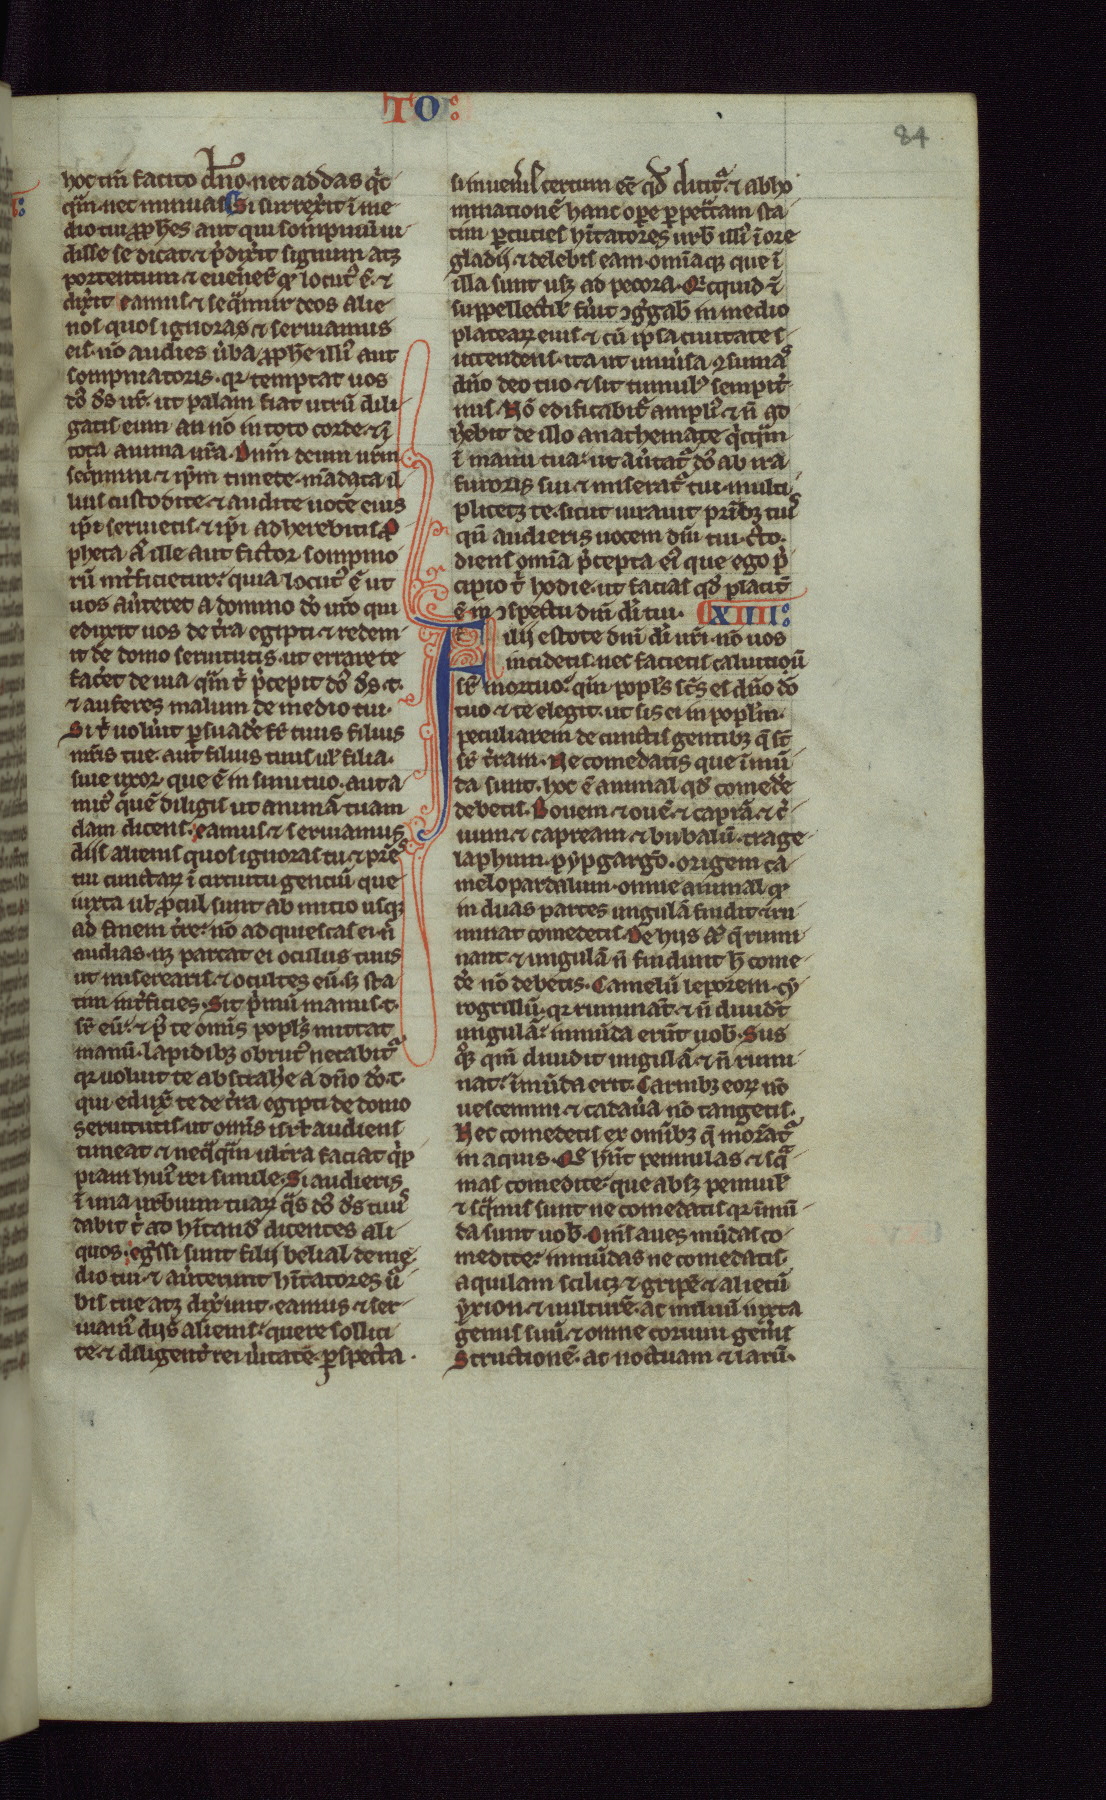 TO:
84
hoc tm̄ facito dn̄o. nec addas q̄ic
q̄m. nec minuas. Si surrex̄it ī me
dio tui ꝓph̄es aut qui sompniū ui
disse se dicat. ⁊ p̄dix̄it signum atꝫ
portentum. ⁊ euen̄it qđ locut᷒ ē. ⁊
dix̄it eamus ⁊ seq̄mur deos alie
nos quos ignoras ⁊ seruiamus
eis. nō audies ūba ꝓph̄e illi᷒ aut
sompniatoris. qr temptat uos
dō ds̄ ur̄. ut palam fiat utrū dili
gatis eum an nō in toto corde. ⁊ ī
tota anima ur̄a. Dnm̄ deum ur̄m
seq̄mini ⁊ ip̄m timete. mādata il
lius custodite. ⁊ audite uocē eius
ip̄i seruietis. ⁊ ip̄i adherebitis. Pro
pheta aū ille aut fictor sompnio
rū int̄ficietur. quia locut᷒ ē ut
uos aūteret a domino dō ur̄o qui
eduxit uos de t̄ra egipti. ⁊ redem
it de domo seruitutis. ut errare te
fac̄et de uia q̄m t̄ p̄cepit dō ds̄ t.
⁊ auferes malum de medio tui.
Si t̄ uolūit p̄suad̄e fr̄ tuus filius
mr̄is tue. aut filius tuus ul̄ filia.
siue uxor que ē in sinu tuo. aut a
mic᷒ q̄uē diligis ut animā tuam
clam dicens. eamus ⁊ seruiamus
diis alienis quos ignoras tu ⁊ pr̄es
tui cunctarꝫ ī circuitu gentiū que
iuxta ul̄ ꝓcul sunt ab initio usqꝫ
ad finem t̄re. nō adquiescas ei. n̄
audias. nꝫ parcat ei oculus tuus
ut miserearis. ⁊ occultes eū. sꝫ sta
tim int̄ficies. Sit p̄mū manus t.
sr̄ eū. ⁊ p᷒ te omīs popl̄s mittat
manū. lapidibꝫ obrut᷒ necabit᷑
qr uoluit te abstrahe a dn̄o dō t.
qui edux̄ te de t̄ra egipti de domo
seruitutis. ut omīs isrl̄ audiens
timeat ⁊ neq̄q̄m ultra faciat q̄ip
piam hui᷒ rei simile. Si audieris
ī una urbium tuarꝫ q̄s dō ds̄ tuus
dabit t̄ ad hītand̄ dicentes ali
quos. eḡssi sunt filii belial de me
dio tui. ⁊ aūterunt hītatores ū
bis tue atꝫ dix̄unt. eamus ⁊ ser
uiam᷒ diis alienis. quere sollici
te ⁊ diligent̄ rei ūitatē. ꝑspecta
si inuenīs certum eē qđ dicit᷑. ⁊ abho
minationē hanc ope ꝑpet̄tam sta
tim ꝑcuties hītatores urb̄ illi᷒ ī ore
gladii. ⁊ delebis eam. omīaqꝫ que ī
illa sunt usꝫ ad pecora. Qicquid ī
suppellectil̄ fūit ꝯg̅gab̄ in medio
platearꝫ eius. ⁊ cū ip̄sa ciuitate s
uccendens. ita ut uniūsa ꝯsumas
dn̄o deo tuo. ⁊ sit tumul᷒ sempit̄
nus. Nō edificabit᷑ ampli᷒. ⁊ n̄ ad
h̄ebit de illo anathemate q̄icq̄m
ī manu tua. ut aūtat᷑ dō ab ira
furoris sui. ⁊ miserat᷑ tui. multi
plicetqꝫ te. sicut iurauit pr̄ibꝫ tuis
qn̄ audieris uocem dn̄i tui. c᷒to
diens omīa p̄cepta ei᷒ que ego p̄
cipio t̄ hodie. ut facias qđ placit̄
ē in ꝯspectu dn̄i dī tui. XIIII:
Filii estote dn̄i dī ur̄i. nō uos
incidetis. nec facietis caluitioū
sr̄ mortuo. qm̄ popl̄s scs̄ es dn̄o dō
tuo. ⁊ te elegit. ut sis ei in popl̄m
peculiarem de cunctis gentibꝫ q̄ st̄
sr̄ t̄ram. Ne comedatis que ī mū
da sunt. hoc ē animal qđ comed̄e
debetis. Bouem. ⁊ ouē. ⁊ caprā. ⁊ c̄
uum ⁊ capream. ⁊ bubalū. trage
laphum. pypgargō. origem. ca
melopardalum. omne animal qđ
in duas partes ungulā findit. ⁊ ru
minat comedetis. De hiis aū q̄ rumi
nant. ⁊ ungulā n̄ findunt h̄ come
d̄e nō debetis. Camelū leporem. cy
rogrillū. qr ruminat̄ ⁊ n̄ diuidt̄
ungulā. inmūda erūt uob̄. Sus
qꝫ qm̄ diuidit ungulā. ⁊ n̄ rumi
nat. īmūda erit. Carnibꝫ eorꝫ nō
uescemini ⁊ cadaūa nō tangetis.
Hec comedetis ex omībꝫ q̄ morāt᷑
in aquis. Q̄ hn̄t pennulas ⁊ sq̄
mas comedite. que absꝫ pennul̄
⁊ sq̄mis sunt ne comedatis qr īmū
da sunt uob̄. Omīs aues mūdas co
medite. inmūdas ne comedatis.
aquilam scilicꝫ ⁊ gripē. ⁊ alietū
yxion. ⁊ uulturē. ac miluū iuxta
genus suū. ⁊ omne coruini gen̄is
Structionē. ac noctuam. ⁊ larū.